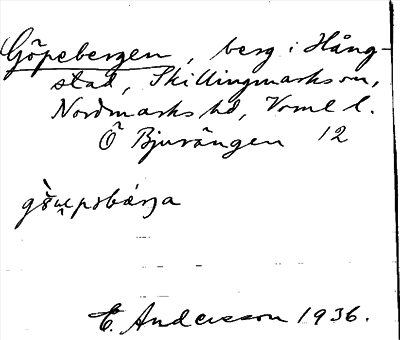 Göpebergen, berg i Hång-
stad, Skillingmarks sn,
Nordmarks hd, Vrml l.
Ö Bjurängen 12
E. Andersson 1936.